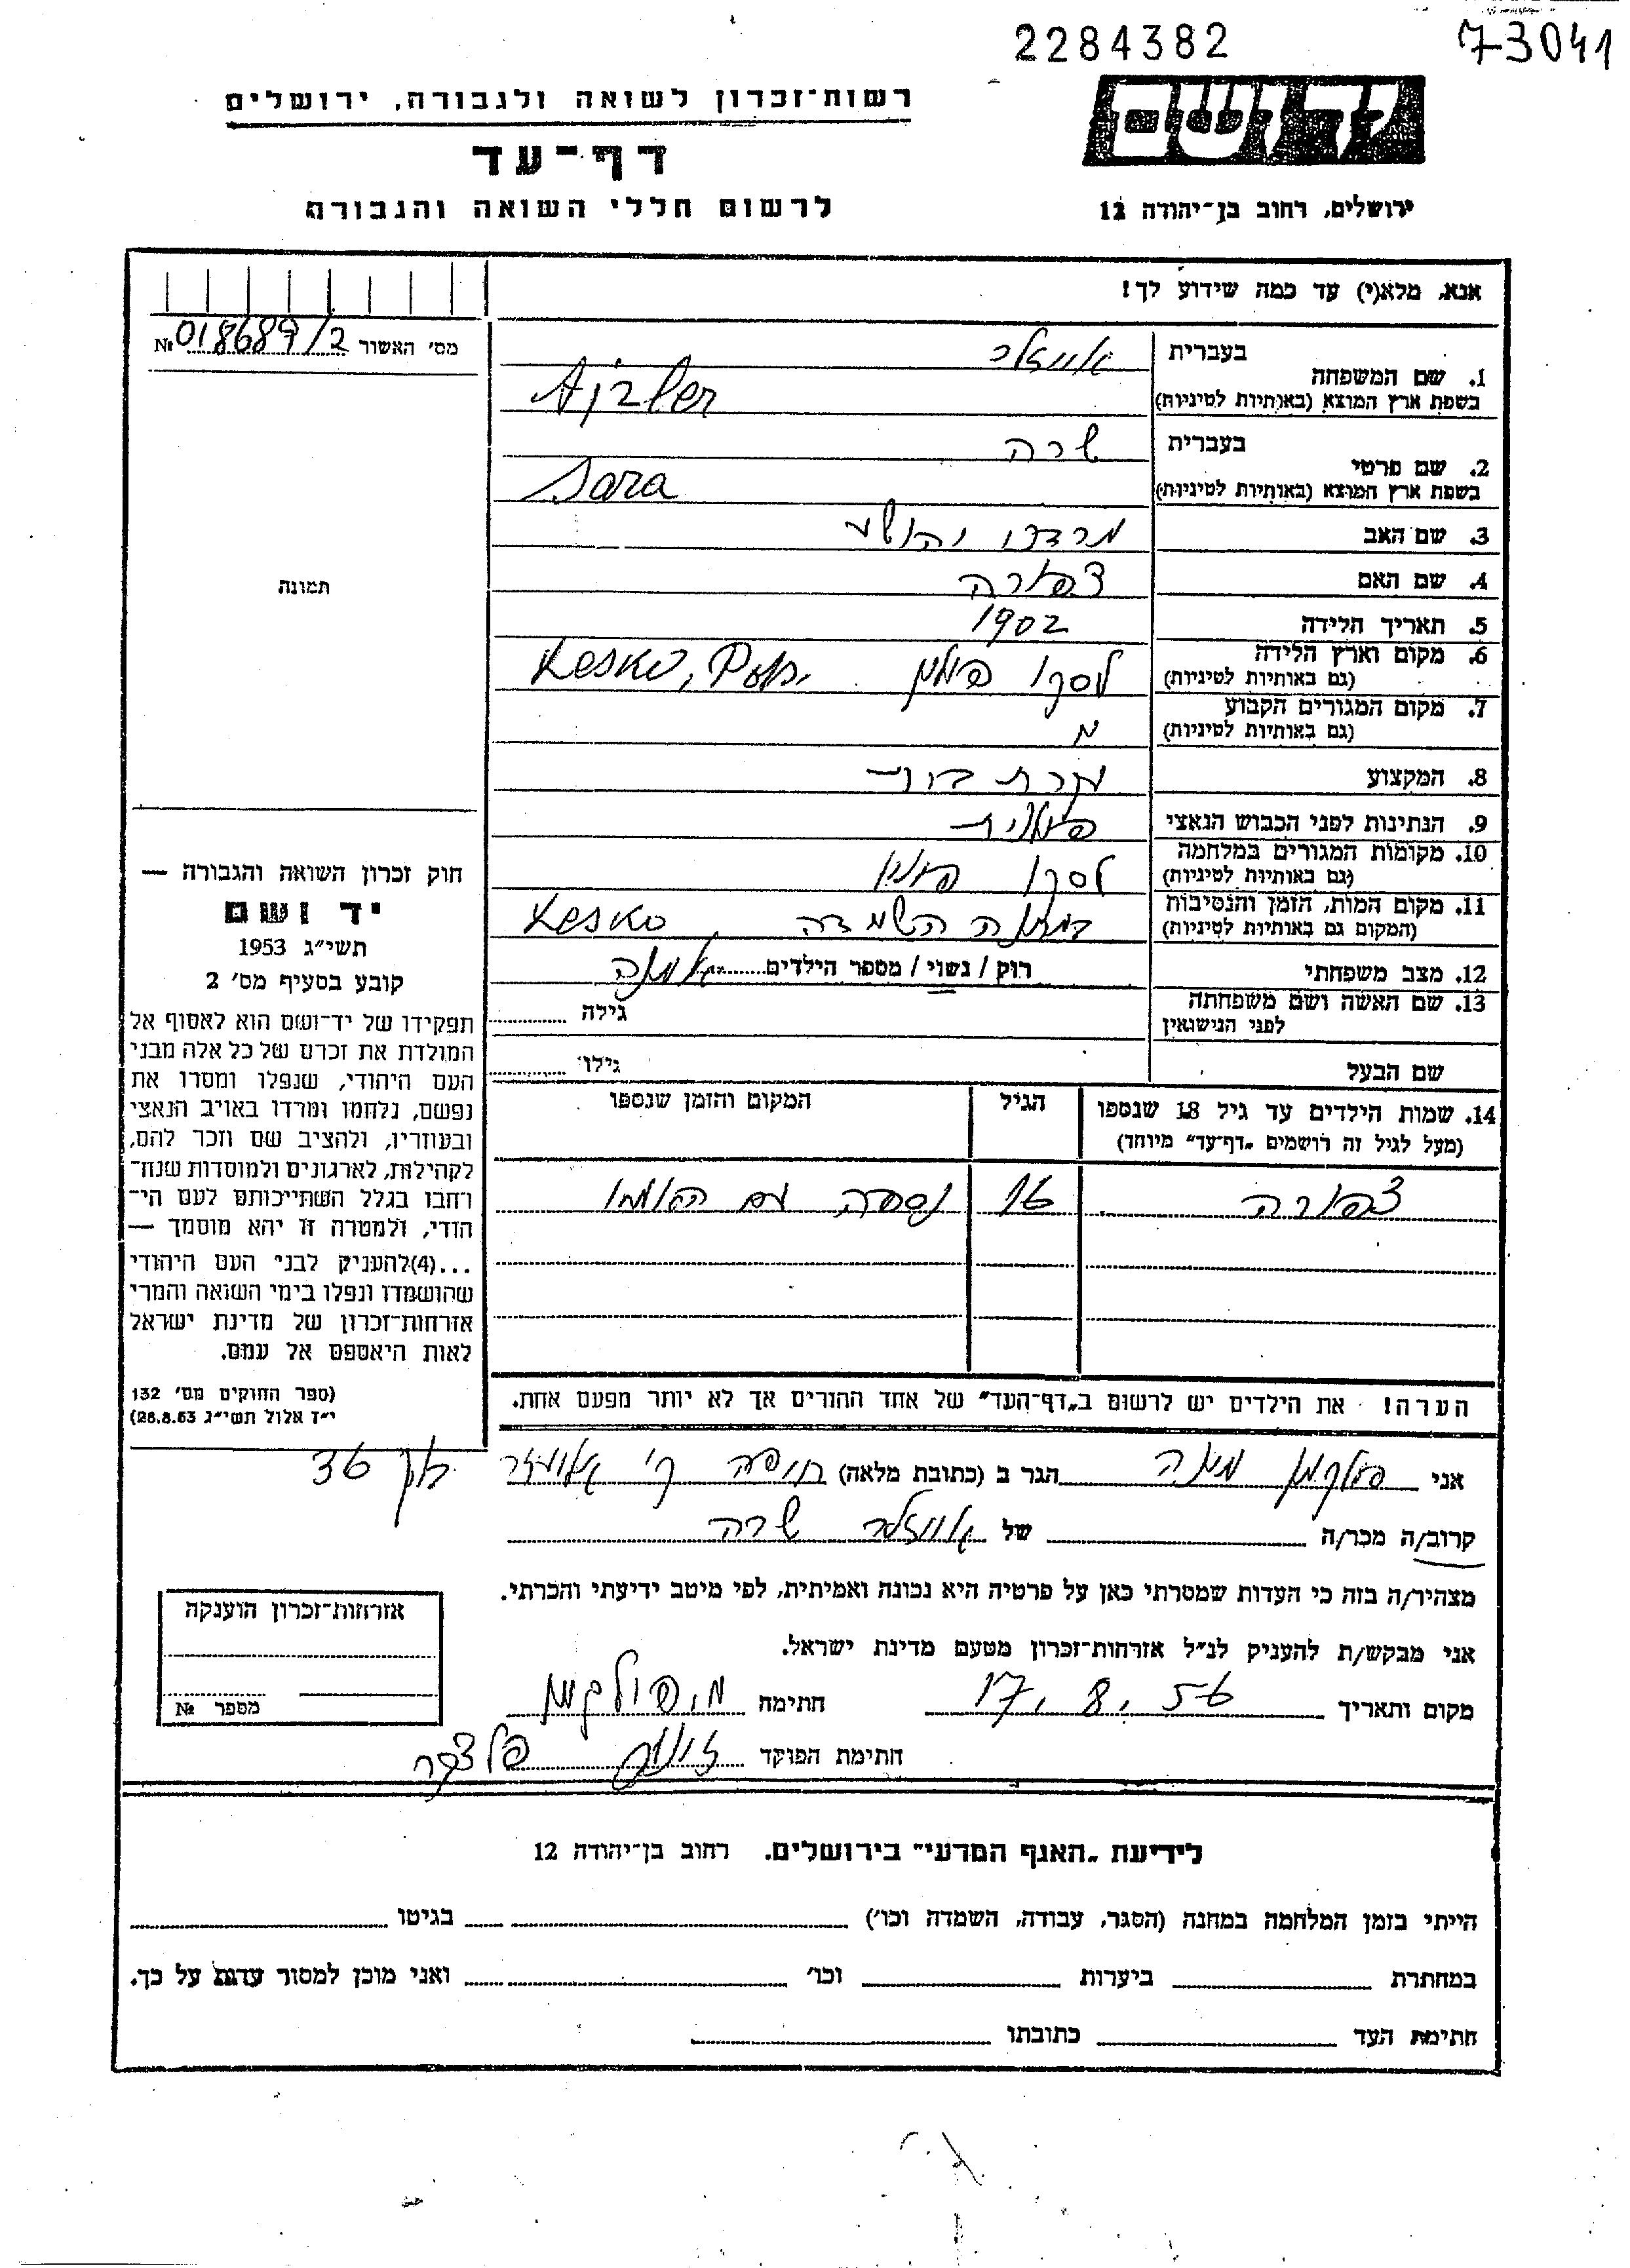 2284382
73041
יד ושם
רשות־זכרון לשואה ולגבורה, ירושלים
דף־עד
לרשום חללי השואה והגבורה
ירושלים, רחוב בן־יהודה 12
אנא, מלא(י) עד כמה שידוע לך!
מס׳ האשור № 018689/2
1. שם המשפחה
בעברית אייזלר
בשפת ארץ המוצא (באותיות לטיניות) Ajzler
2. שם פרטי
בעברית שרה
בשפת ארץ המוצא (באותיות לטיניות) Sara
3. שם האב מרדכי יהושע
4. שם האם צפורה
5. תאריך הלידה 1902
6. מקום וארץ הלידה
(גם באותיות לטיניות) לסקו פולין Lesko,
7. מקום המגורים הקבוע
(גם באותיות לטיניות)
8. המקצוע עקרת בית
9. הנתינות לפני הכבוש הנאצי פולנית
10. מקומות המגורים במלחמה
(גם באותיות לטיניות) לסקו פולין
11. מקום המות, הזמן והנסיבות
(המקום גם באותיות לטיניות) במחנה השמדה Lesko
12. מצב משפחתי רוק / נשוי / מספר הילדים
13. שם האשה ושם משפחתה
לפני הנישואין
גילה
שם הבעל
גילו
14. שמות הילדים עד גיל 18 שנספו
(מעל לגיל זה רושמים „דף־עד״ מיוחד)
הגיל
המקום והזמן שנספו
צפורה 16 נספתה עם
הערה! את הילדים יש לרשום ב„דף־העד״ של אחד ההורים אך לא יותר מפעם אחת.
תמונה
חוק זכרון השואה והגבורה —
יד ושם
תשי״ג 1953
קובע בסעיף מס׳ 2
תפקידו של יד־ושם הוא לאסוף אל
המולדת את זכרם של כל אלה מבני
העם היהודי, שנפלו ומסרו את
נפשם, נלחמו ומרדו באויב הנאצי
ובעוזריו, ולהציב שם וזכר להם,
לקהילות, לארגונים ולמוסדות שנח־
רחבו בגלל השתייכותם לעם הי־
הודי, ולמטרה זו יהא מוסמך —
...(4)להעניק לבני העם היהודי
שהושמדו ונפלו בימי השואה והמרי
אזרחות־זכרון של מדינת ישראל
לאות היאספם אל עמם.
(ספר החוקים מס׳ 132
י״ז אלול תשי״ג 28.8.53)
אני פולקמן הגר ב (כתובת מלאה) חיפה
קרוב/ה מכר/ה של אייזלר שרה
מצהיר/ה בזה כי העדות שמסרתי כאן על פרטיה היא נכונה ואמיתית, לפי מיטב ידיעתי והכרתי.
אני מבקש/ת להעניק לנ״ל אזרחות־זכרון מטעם מדינת ישראל.
מקום ותאריך 17.8.56 חתימה מ. פולקמן
חתימת הפוקד
אזרחות־זכרון הוענקה
מספר №
לידיעת „האגף המדעי״ בירושלים, רחוב בן־יהודה 12
הייתי בזמן המלחמה במחנה (הסגר, עבודה, השמדה וכו׳) בגיטו
במחתרת ביערות וכו׳ ואני מוכן למסור עדות על כך.
חתימת העד כתובתו